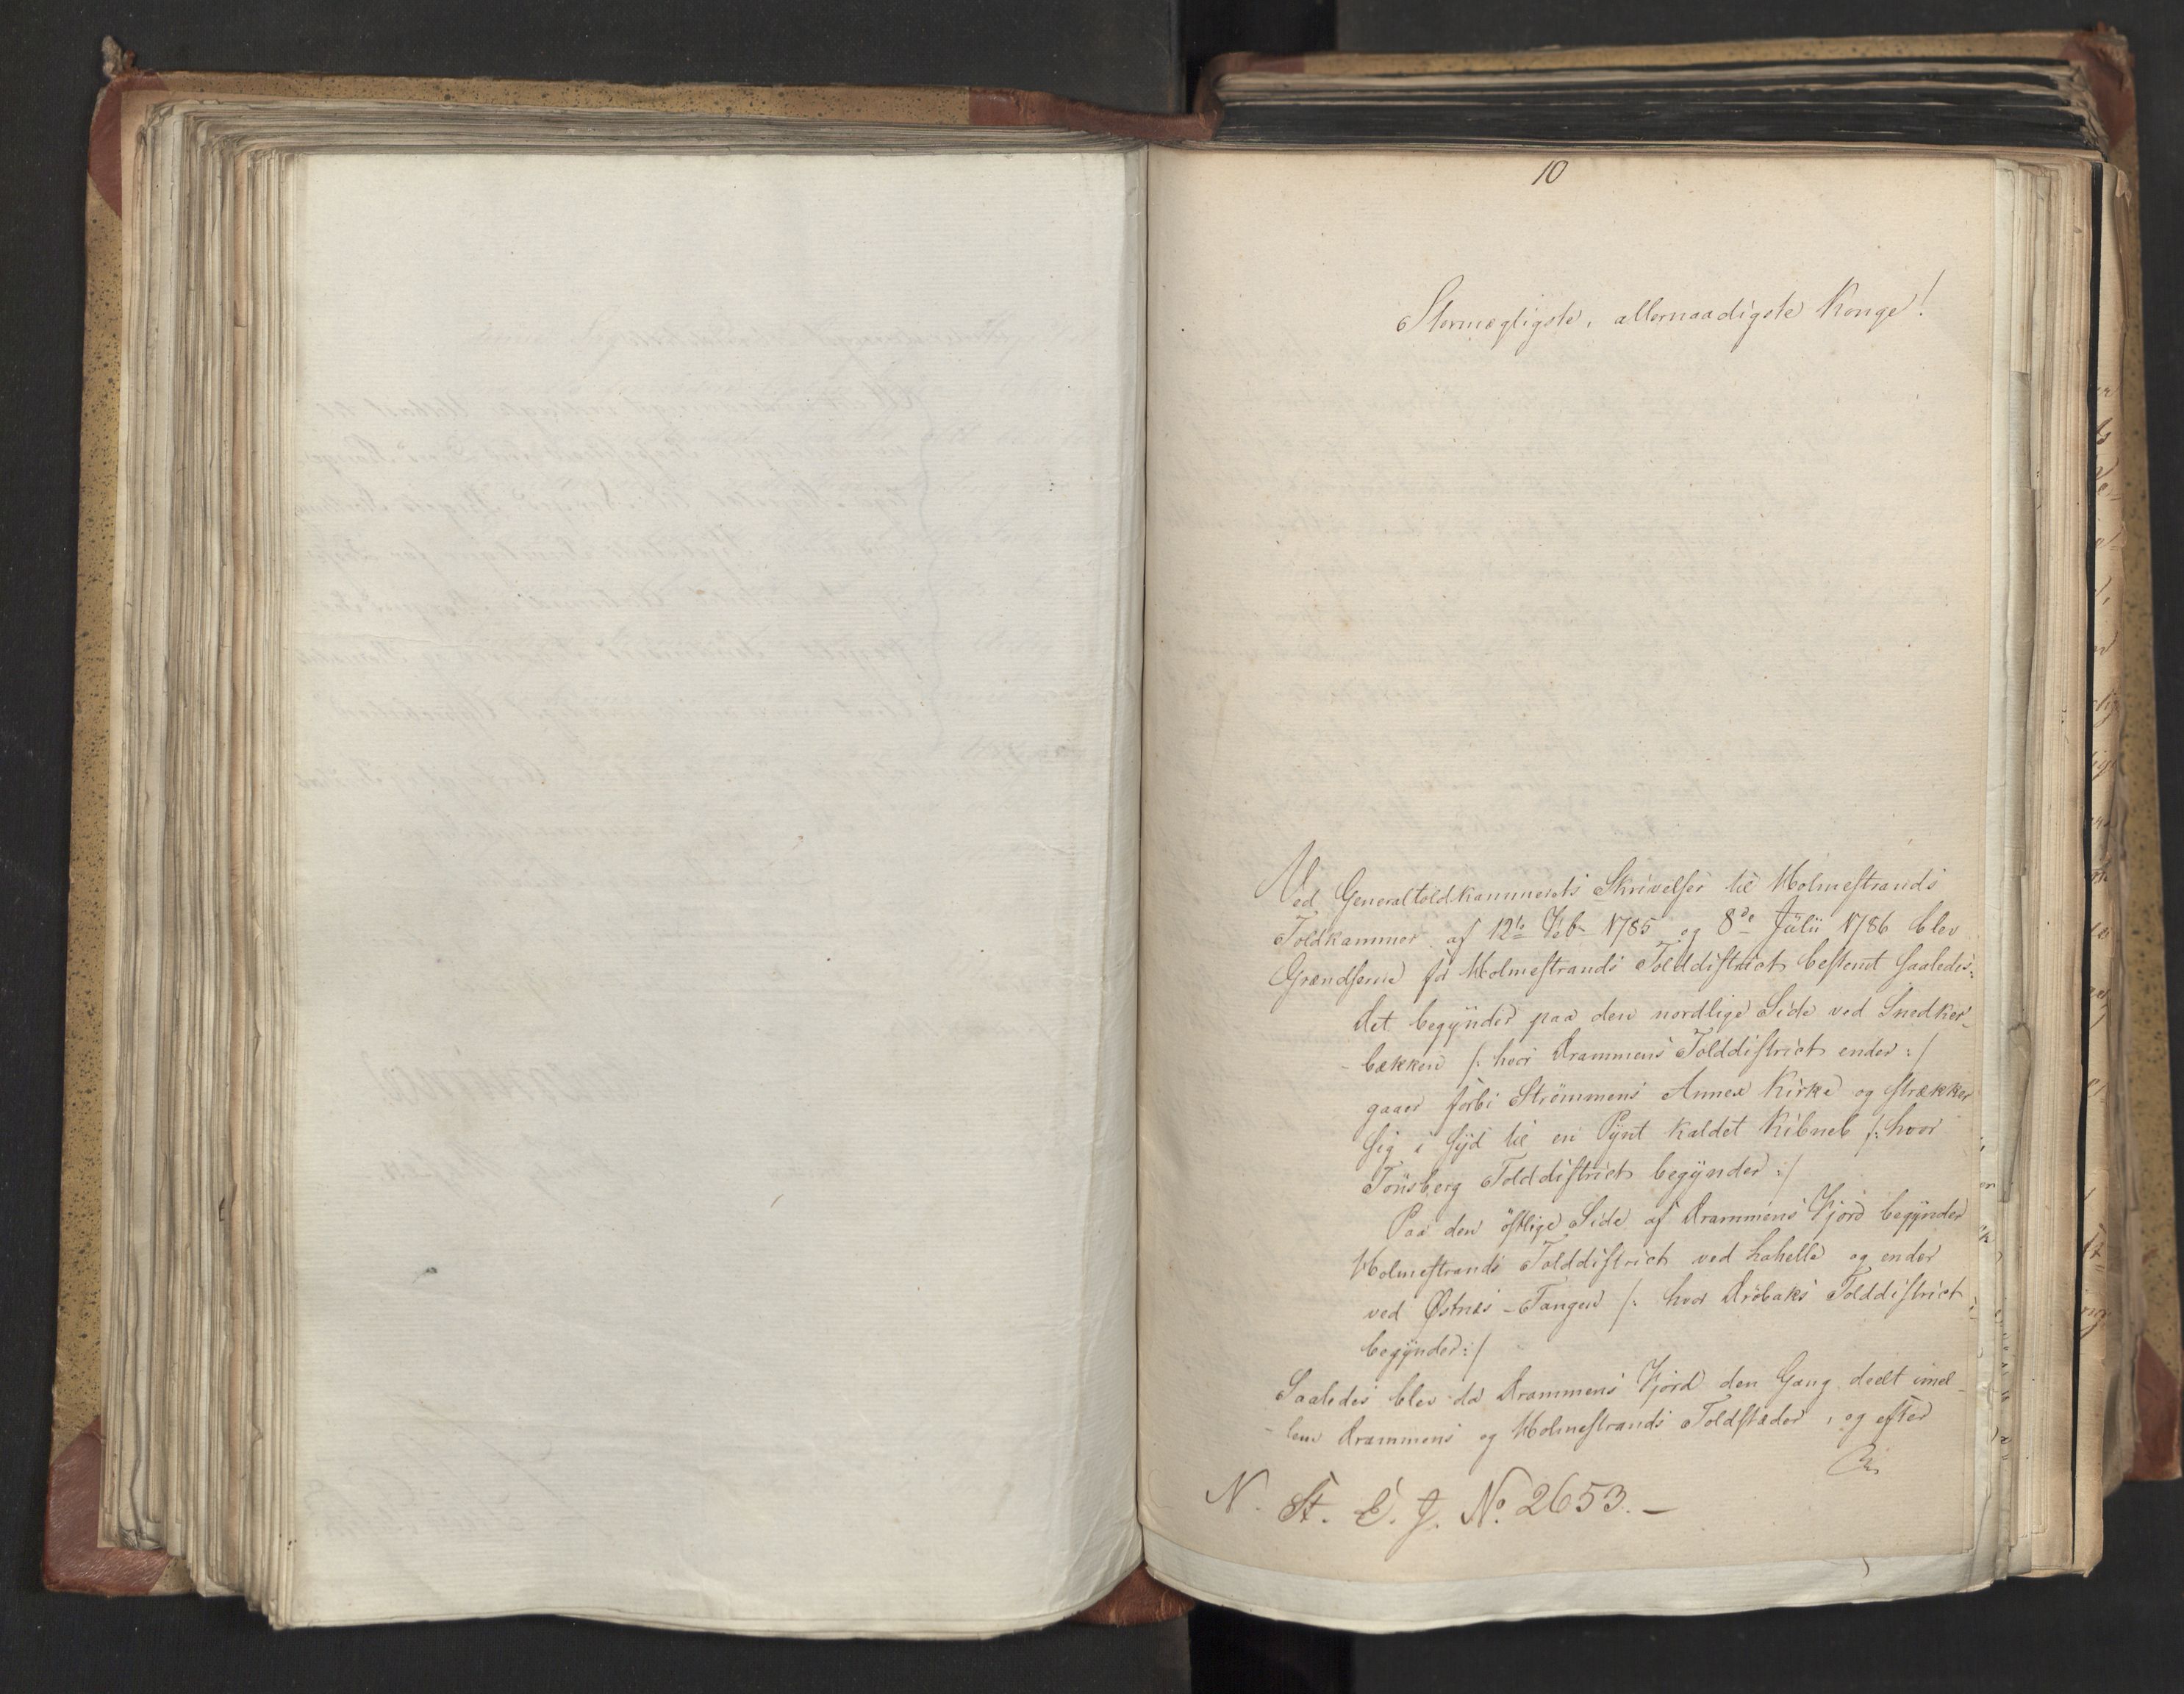 10
Stormægtigste, allernaadigste Konge!
Ved Generaltoldkammerets Skrivelser til Holmestrands
Toldkammer af 12te Feb. 1785 og 8de Julii 1786 blev
Grændserne for Holmestrands Tolddistrict bestemt saaledes:
det begynder paa den nordlige Side ved Snedker-
-bækken /: hvor Drammens Tolddistrict ender :/
gaaer forbi Strömmens Annex Kirke og strækker
sig i Syd til en Pynt kaldet Kibneb /: hvor
Tönsberg Tolddistrict begynder :/
Paa den östlige Side af Drammens Fjord begynder
Holmestrands Tolddistrict ved Lahelle og ender
ved Østnæs-Tangen /: hvor Dröbaks Tolddistrict
begynder :/
Saaledes blev da Drammens Fjord den Gang deelt imel-
-lem Drammens og Holmestrands Toldstæder, og efter
N. St. E. J. No. 2653.-